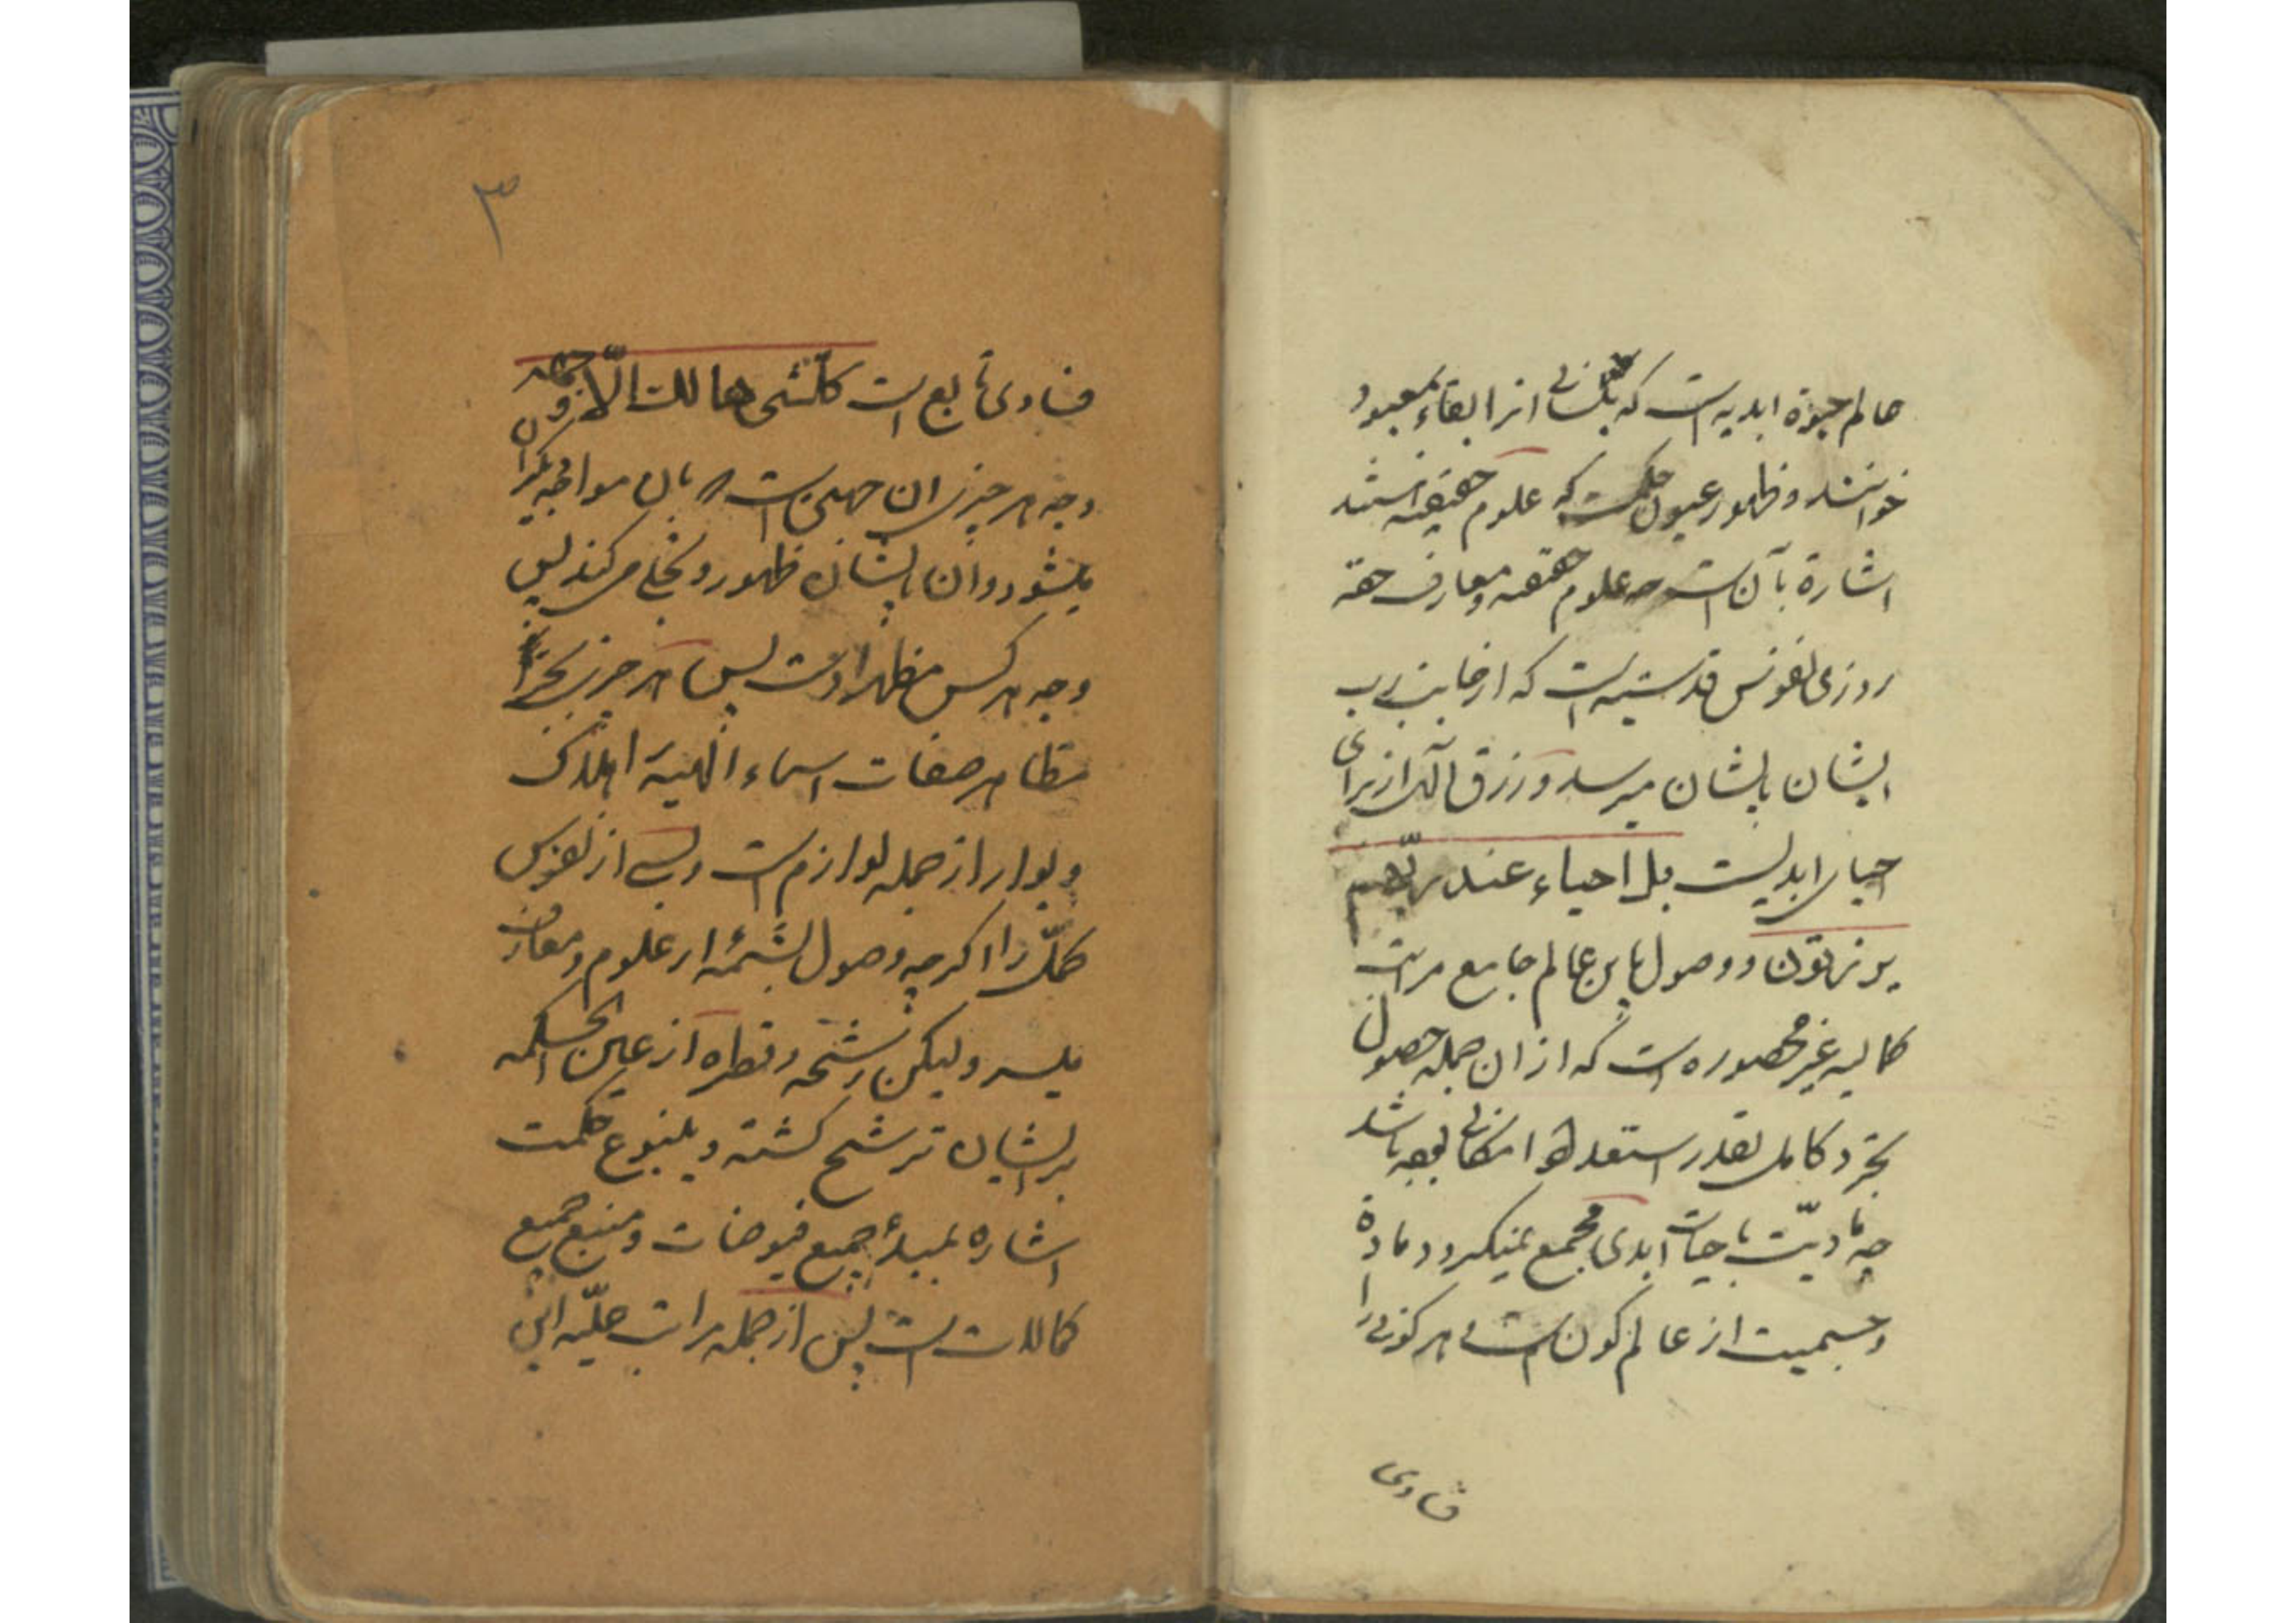 عالم حیوة ابدیه است که بلسانی انرا بقاء بمعبود
خوانند و ظهور عیون حکمت که علوم حقیقیه استند
اشارة بآن است چه علوم حقیقه و معارف حقه
روزی نفوس قدسیه است که از جانب رب
ایشان بایشان میرسد و رزق آلهی از برای
احیای ابدیست بل احیاء عند ربّهم
یرزقون و وصول باین عالم جامع مراتب
کمالیه غیر محصوره است که از ان جمله حصول
تجرد کامل بقدر استعداد امکانی باشد
چه مادیّت با حیات ابدی مجمع نمیکردد و مادة
و جسمیت از عالم کون است و هر کونی را
فسادی
۳
فسادی تابع است کلّشی هالک الّا وجهه و
وجه هر چیزی ان جهتی است بان مواجهه
میشود و ان بایشان ظهور و تجلی می کند پس
وجه هر کس مظهر اوست پس هر چیزی بجز
مظاهر صفات و اسماء الهیه اهلاک
و بوار از جمله لوازم است و بسی از نفوس
کمّل را اکرچه وصول بشمّه از علوم و معارف
میسر ولیکن رشحه و قطره از عین الحکمه
بر ایشان ترشح کشته و ینبوع حکمت
اشاره بمبدأ جمیع فیوضات و منبع جمیع
کمالات است پس از جمله مراتب جلیّه این